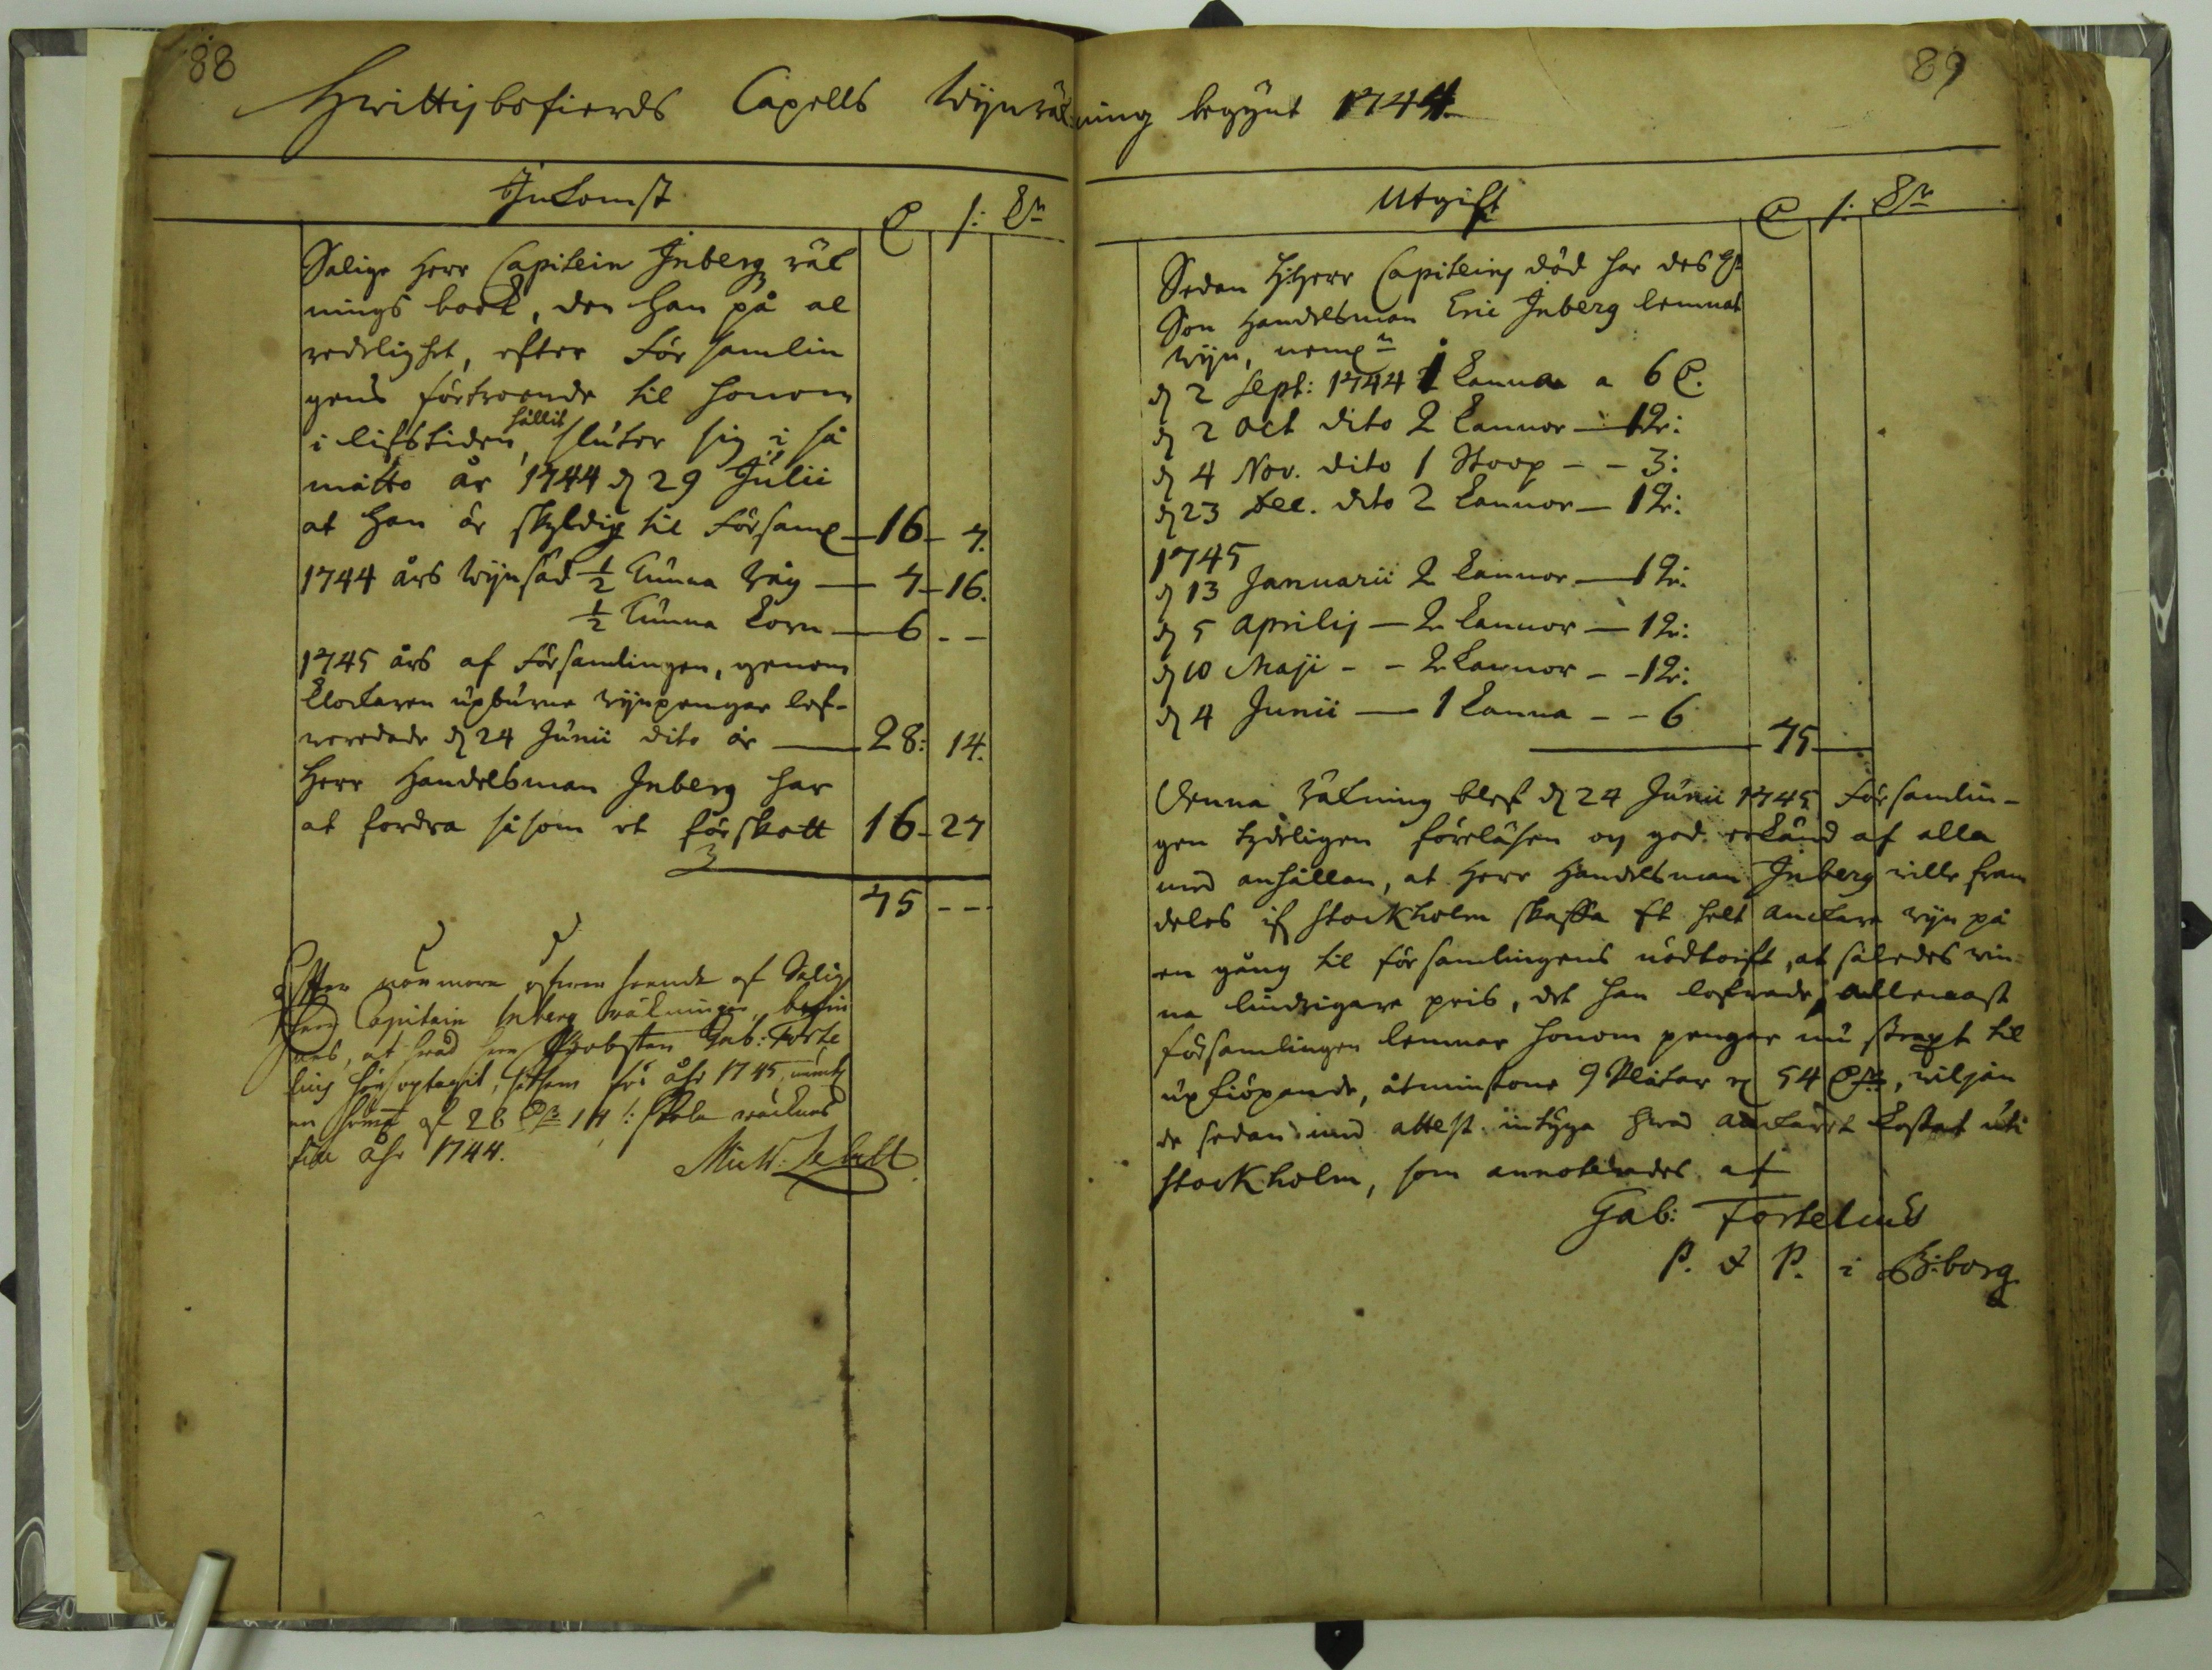 88
89
Hwittisbofierds Capells Wijnräkning begÿnt 1744
Inkomst
S:
Salige Herr Capitein Inberg räk
nings book, den han på al
redelighet, efter Församlin
gens förtroende til honom
hållit
i lifstiden, slutar sig i så
måtto år 1744 d 29 Julii
at han är skyldig til Församl 16 7.
1744 års Wijnsäd ½ Tunna Råg 7 16.
½ Tunna Korn 6 - -
1745 års af Församlingen, genom
Klockaren upburne wijnpenger lef-
vererade d 24 Junii dito år 28: 14.
Herr Handelsman Inberg har
at fordra såsom et förskott 16 - 27
75 - - -
Efter noumare efterseende af Salig
Herr Capitain Inberg räkningar, befin
nes, at hwad herr Probsten Gab: Forte
lius här optagit, såsom för åhr 1745, nembl
en summa af 28 14 s: skole räcknas
för åhr 1744.
Utgift
S:
Sedan H: Herr Capiteins död har des
Son Handelsman Eric Inberg lemnat
wijn, neml
d 2 Sept: 1744 1 Kanna a 6
d 2 Oct dito 2 Kannor — 12:
d 4 Nov. dito 1 Stoop - - 3:
d 23 Dec. dito 2 Kannor — 12:
1745
d 13 Januarii 2 Kannor — 12:
d 5 Aprilis — 2 Kannor — 12:
d 10 Maji - - 2 Kannor - - 12:
d 4 Junii — 1 Kanna - - 6
75
Denna Räkning blef d 24 Junii 1745 Församlin-
gen tydeligen föreläsen og god erkänd af alla
med anhållan, at Herr Handelsman Inberg wille fram
deles if Stockholm skaffa Et helt anckare wijn på
en gång til församlingens nödtorft, at således win
na lindrigare pris, det han lofvade, allenast
församlingen lemnar honom penger nu strax til
upkiöpande, åtminstone 9 Plåtar 54, viljan
de sedan med attest intyga hwad anckaret kostat uti
Stockholm, som annoterades af
Gab: Fortelius
P. & P. i B:borg